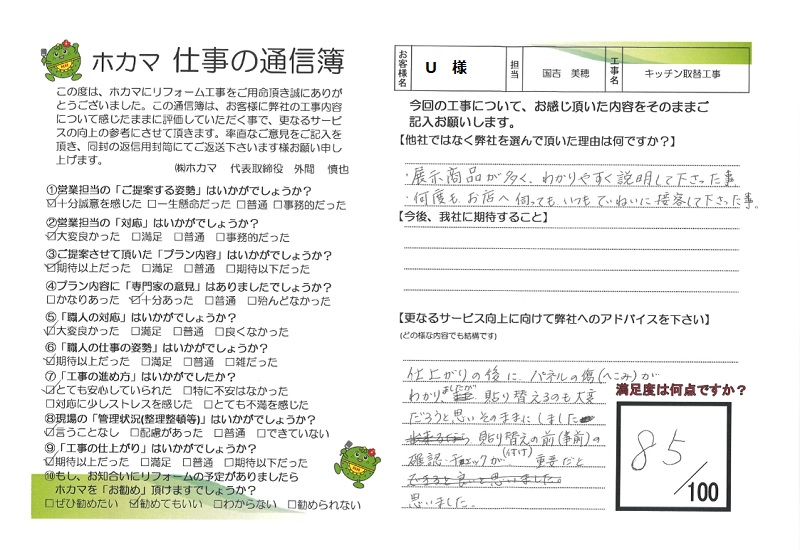 ホカマ 仕事の通信簿
この度は、ホカマにリフォーム工事をご用命頂き誠にありが
とうございました。この通信簿は、お客様に弊社の工事内容
について感じたままに評価していただく事で、更なるサービ
スの向上の参考にさせて頂きます。率直なご意見をご記入を
頂き、同封の返信用封筒にてご返送下さいます様お願い申し
上げます。
㈱ホカマ 代表取締役 外間 慎也
①営業担当の「ご提案する姿勢」はいかがでしょうか？
☑十分誠意を感じた □一生懸命だった □普通 □事務的だった
②営業担当の「対応」はいかがでしょうか？
☑大変良かった □満足 □普通 □事務的だった
③ご提案させて頂いた「プラン内容」はいかがでしょうか？
☑期待以上だった □満足 □普通 □期待以下だった
④プラン内容に「専門家の意見」はありましたでしょうか？
□かなりあった ☑十分あった □普通 □殆んどなかった
⑤「職人の対応」はいかがでしょうか？
☑大変良かった □満足 □普通 □良くなかった
⑥「職人の仕事の姿勢」はいかがでしょうか？
☑期待以上だった □満足 □普通 □雑だった
⑦「工事の進め方」はいかがでしたか？
☑とても安心していられた □特に不安はなかった
□対応に少しストレスを感じた □とても不満を感じた
⑧現場の「管理状況(整理整頓等)」はいかがでしょうか？
☑言うことなし □配慮があった □普通 □できていない
⑨「工事の仕上がり」はいかがでしょうか？
☑期待以上だった □満足 □普通 □期待以下だった
⑩もし、お知合いにリフォームの予定がありましたら
ホカマを「お勧め」頂けますでしょうか？
□ぜひ勧めたい ☑勧めてもいい □わからない □勧められない
お客様名 U 様 担当 国吉 美穂 工事名 キッチン取替工事
今回の工事について、お感じ頂いた内容をそのままご
記入お願いします。
【他社ではなく弊社を選んで頂いた理由は何ですか？】
・展示商品が多く、わかりやすく説明して下さった事
・何度もお店へ伺っても、いつもていねいに接客して下さった事。
【今後、我社に期待すること】
【更なるサービス向上に向けて弊社へのアドバイスを下さい】
(どの様な内容でも結構です)
仕上がりの後に、パネルの傷(へこみ)が
わかりましたが 貼り替えるのも大変
だろうと思いそのままにしました
貼り替えの前(事前)の
確認・チェックが(だけ)重要だと
思いました。
満足度は何点ですか？
85/100